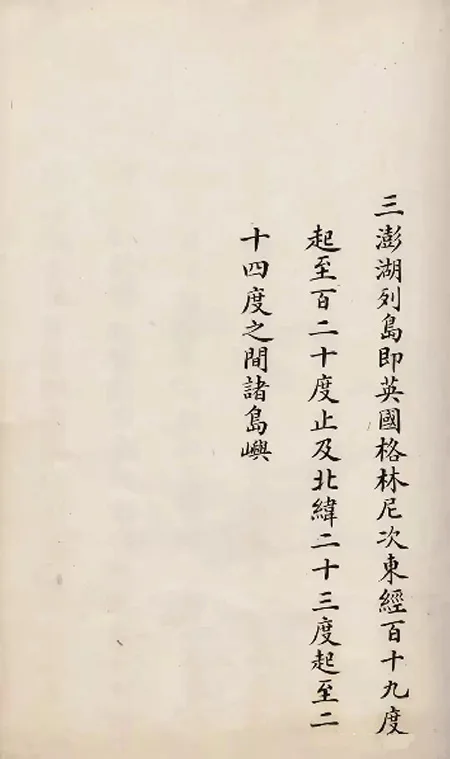 三澎湖列島即英國格林尼次東經百十九度
起至百二十度止及北緯二十三度起至二
十四度之間諸島嶼